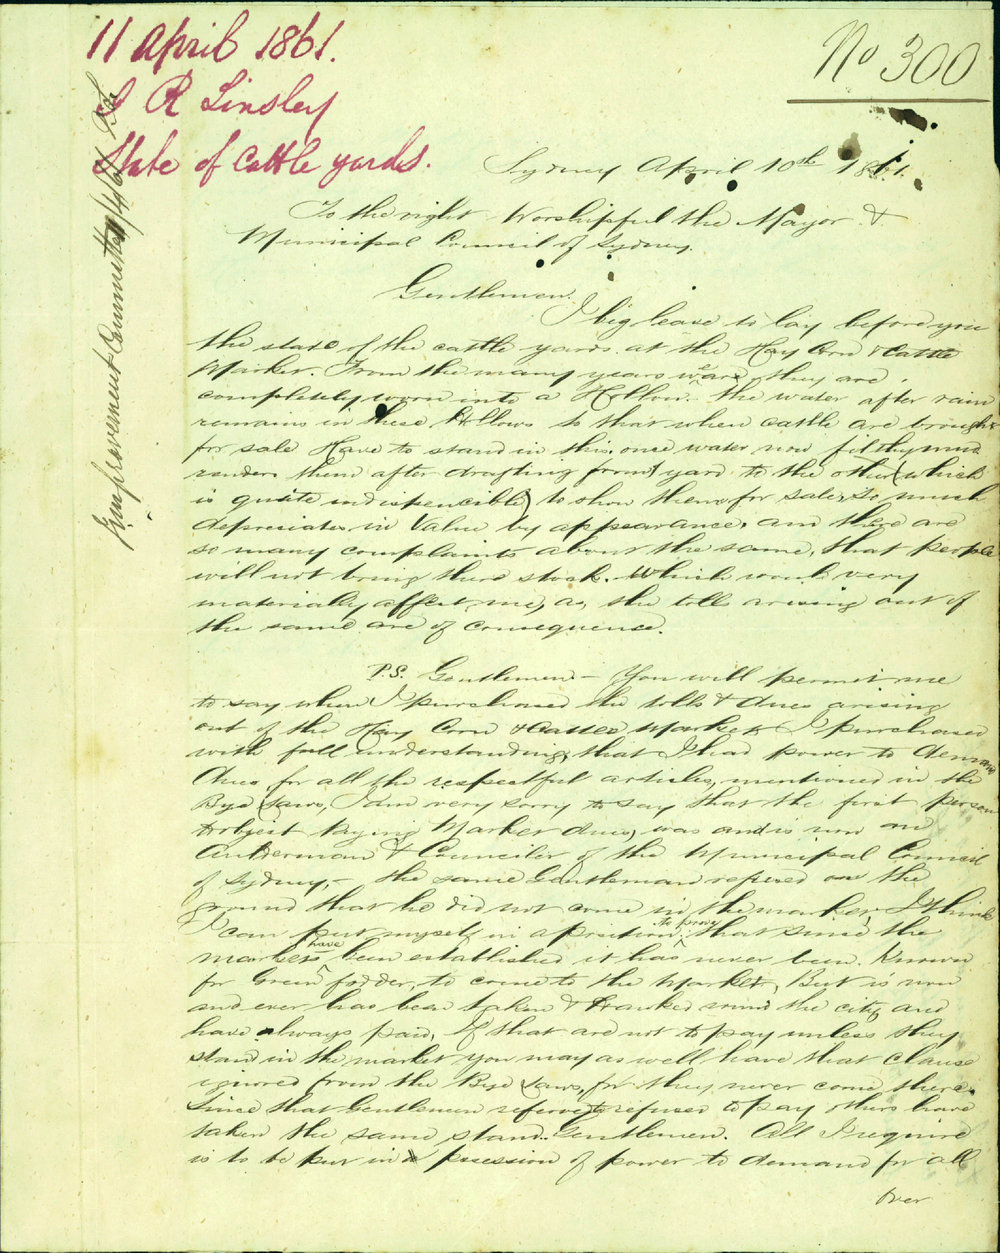 11 April 1861.
S R Linsley
State of Cattle yards.
No 300
Improvement Committee
Sydney April 10th 1861.
To the right Worshipful the Mayor &
Municipal Council of Sydney.
Gentlemen.
I big leave to lay before you
the state of the cattle yards at the Hay Corn & Cattle
Market. From the many years ware, they are
completely worn into a Hollow. the water after rain
remains in these Hollows so that when cattle are brought
for sale Have to stand in this, once water now filthy mud
renders them after drafting from 1 yard to the other (which
is quite indispencible) to show them for sale, so much
depreciates in Value by appearance, and there are
so many complaints about the same, that people
will not bring there stock. Which would very
materially affect me, as, the tolls arising out of
the same are of consequence.
P.S. Gentlemen - You will permit me
to say when I purchased the tolls & dues arising
out of the Hay Corn & Cattle Market I purchased
with full understanding, that I had power to demand
Dues for all the respectful articles, mentioned in the
Bye Laws, I am very sorry to say that the first person
to object Paying Market dues, was and is now an
Aulderman & Counciler of the Municipal Council
of Sydney, - the same Gentleman refused on the
ground that he did not come in the market, I think
I can put myself in a position to prove that since the
markets have been established it has never been Known
for Green fodder, to come to the Market, But is now
and ever has been taken & Hawked round the city, and
have always paid, If that are not to pay unless they
stand in the market you may as well have that clause
ignored from the Bye Laws, for they never come there.
Since that Gentlemen referred to refused to pay others have
taken the same stand. Gentlemen. All I require
is to be put in pocession of power to demand for all
over